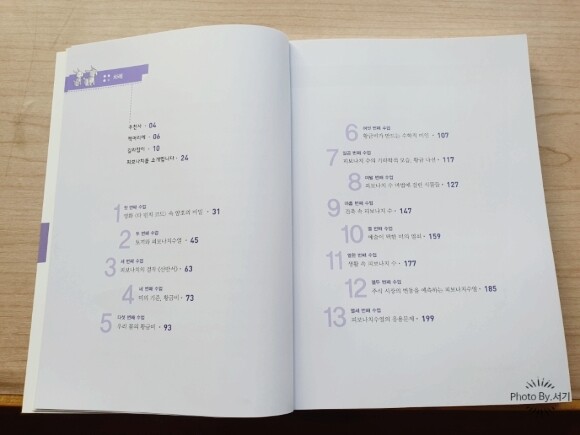 차례
추천사 · 04
머리말 · 06
길라잡이 · 10
피보나치를 소개합니다 · 24
1 첫 번째 수업
영화 《다 빈치 코드》 속 암호의 비밀 · 31
2 두 번째 수업
토끼와 피보나치수열 · 45
3 세 번째 수업
피보나치의 걸작 《산반서》 · 63
4 네 번째 수업
미의 기준, 황금비 · 73
5 다섯 번째 수업
우리 몸의 황금비 · 93
6 여섯 번째 수업
황금비가 만드는 수학적 비밀 · 107
7 일곱 번째 수업
피보나치 수의 기하학적 모습, 황금 나선 · 117
8 여덟 번째 수업
피보나치 수 마법에 걸린 식물들 · 127
9 아홉 번째 수업
건축 속 피보나치 수 · 147
10 열 번째 수업
예술이 택한 미의 원리 · 159
11 열한 번째 수업
생활 속 피보나치 수 · 177
12 열두 번째 수업
주식 시장의 변동을 예측하는 피보나치수열 · 185
13 열세 번째 수업
피보나치수열의 응용문제 · 199
Photo By.서기